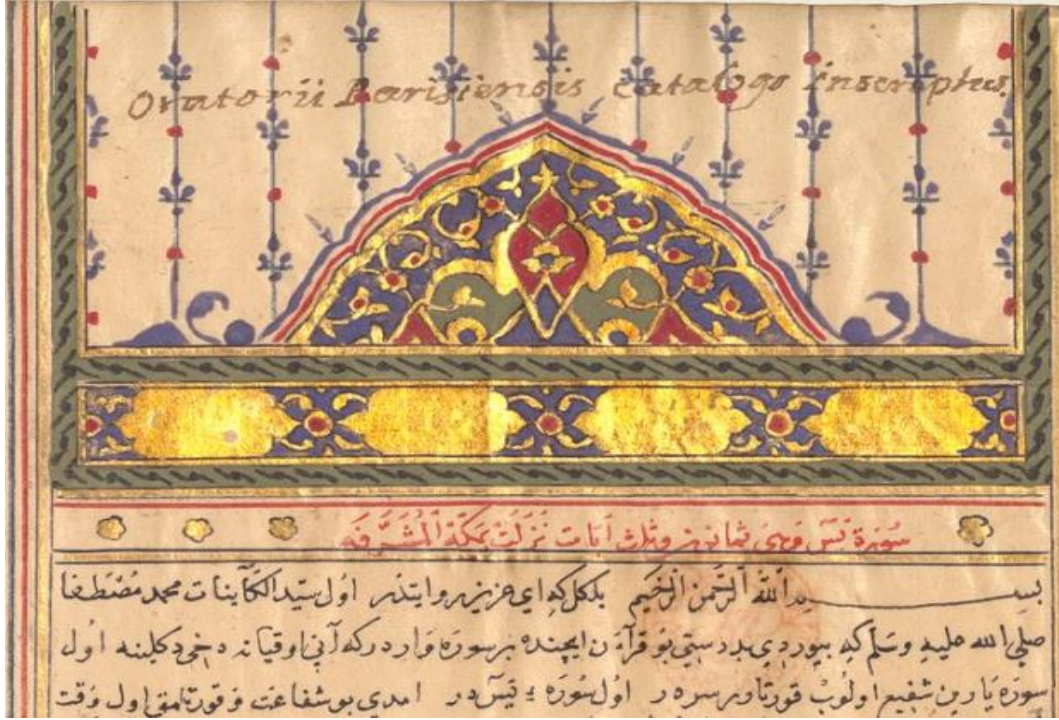 Oratorii Parisiensis Catalogo inscriptus
سُورَة يٰسٓ وهي ثمانون وثلث آيات نَزَلَتْ بمَكَّةَ الْمُشَرَّفَه
بسم الله الرَّحمن الرَّحيم بلكل كه اى عزيز روايتدر اول سيّد الكائنات محمد مُصْطَفا
صلى الله عليه وسَلّم كه بيوردى بدرستى بو قرآن ايچنده بر سورة وارد در كه آنى اوقيانه دخى دكلينه اول
سورَة يارين شفيع اولوب قورتاور سرە در اول سُورَه يٰسٓ در امدى بو شفاعت و قورتامق اول وَقت